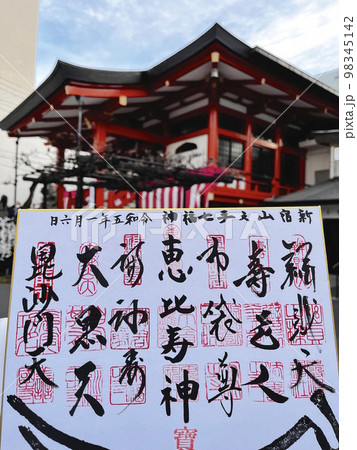 新宿山之手七福神 令和五年一月六日
辯財天
寿老人
布袋尊
恵比寿神
福禄寿
大黒天
毘沙門天
寶
98345142